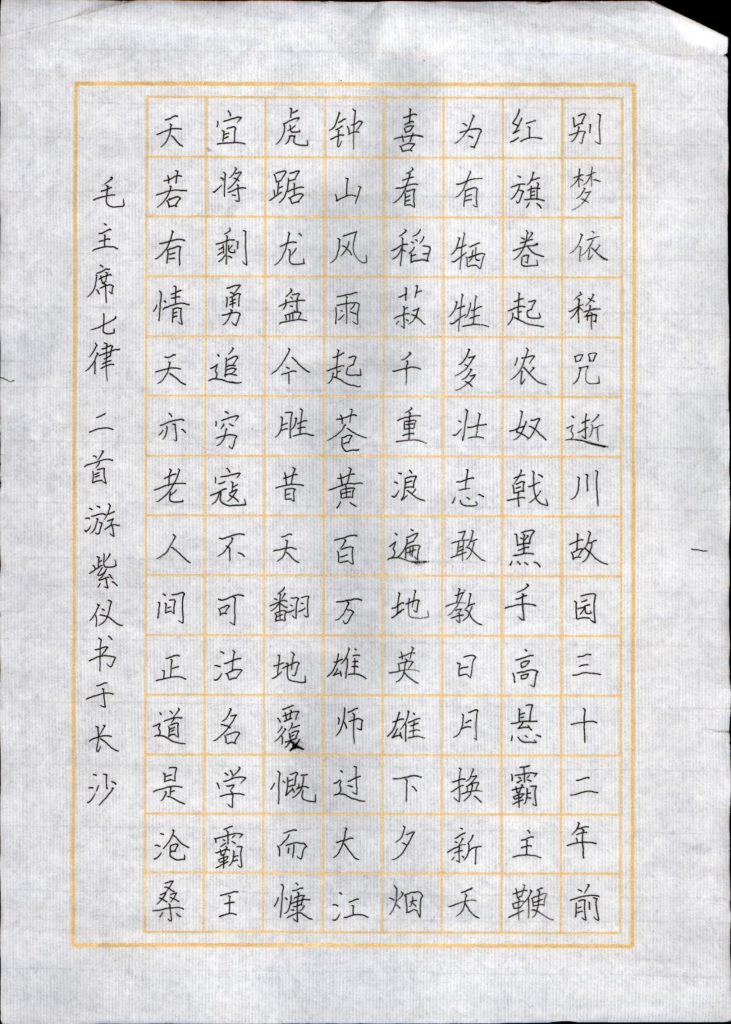 别梦依稀咒逝川故园三十二年前
红旗卷起农奴戟黑手高悬霸主鞭
为有牺牲多壮志敢教日月换新天
喜看稻菽千重浪遍地英雄下夕烟
钟山风雨起苍黄百万雄师过大江
虎踞龙盘今胜昔天翻地覆慨而慷
宜将剩勇追穷寇不可沽名学霸王
天若有情天亦老人间正道是沧桑
毛主席七律 二首游紫仪书于长沙